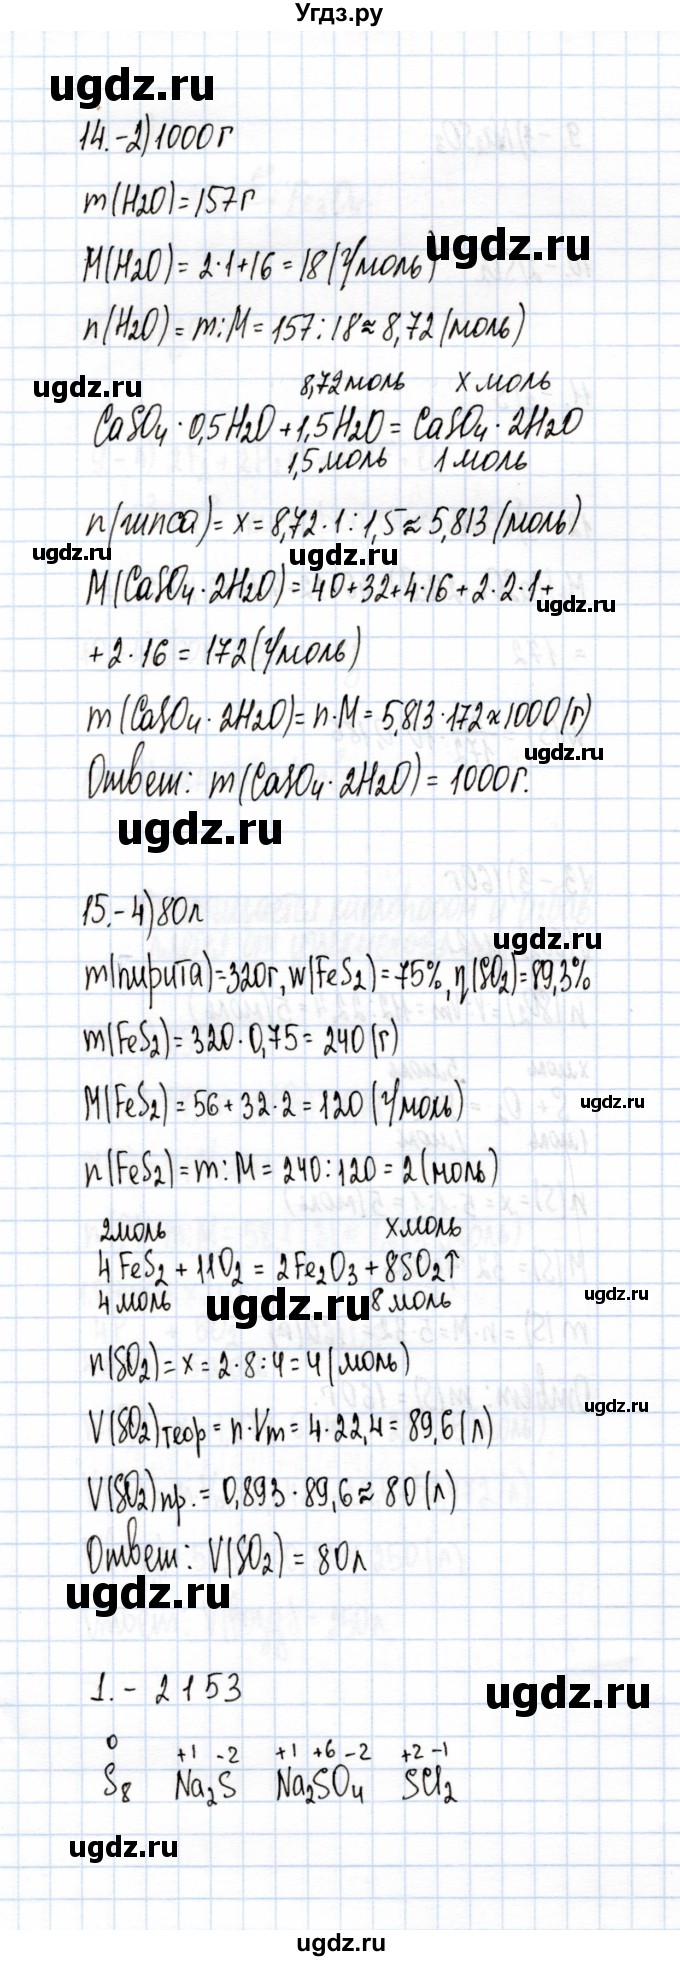 Угдз.ру
ugdz.ru
14.-2) 1000г
m(H₂O)=157г
ugdz.ru
M(H₂O)=2·1+16=18(г/моль)
n(H₂O)=m:M=157:18≈8,72(моль)
ugdz.ru
8,72моль x моль
CaSO₄·0,5H₂O+1,5H₂O=CaSO₄·2H₂O
1,5моль 1моль
n(гипса)=x=8,72·1:1,5≈5,813(моль)
ugdz.ru ugdz.ru
M(CaSO₄·2H₂O)=40+32+4·16+2·2·1+
ugdz.ru
+2·16=172(г/моль)
m(CaSO₄·2H₂O)=n·M=5,813·172≈1000(г)
ugdz.ru
Ответ: m(CaSO₄·2H₂O)=1000г.
ugdz.ru
15.-4) 80л
ugdz.ru
m(пирита)=320г, w(FeS₂)=75%, η(SO₂)=89,3%
m(FeS₂)=320·0,75=240(г)
M(FeS₂)=56+32·2=120(г/моль)
ugdz.ru
n(FeS₂)=m:M=240:120=2(моль)
2моль xмоль
4FeS₂+11O₂=2Fe₂O₃+8SO₂↑
4моль 8моль
ugdz.ru ugdz.ru
n(SO₂)=x=2·8:4=4(моль)
ugdz.ru
V(SO₂)теор=n·Vm=4·22,4=89,6(л)
V(SO₂)пр.=0,893·89,6≈80(л)
Ответ: V(SO₂)=80л
ugdz.ru
1.-2153
ugdz.ru
0 +1 -2 +1 +6 -2 +2 -1
S₈ Na₂S Na₂SO₄ SCl₂
ugdz.ru
ugdz.ru